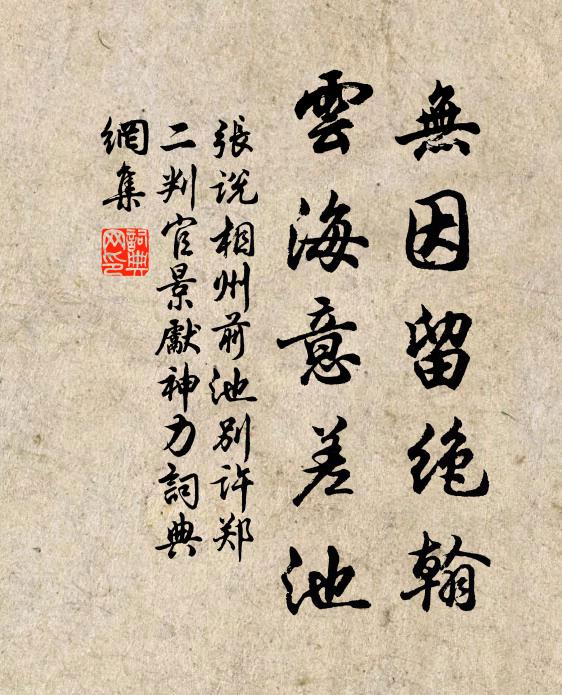 無因留絶翰
雲海意差池
張说相州前池别许郑
二判官景獻神力詞典
網集
詞典
网印